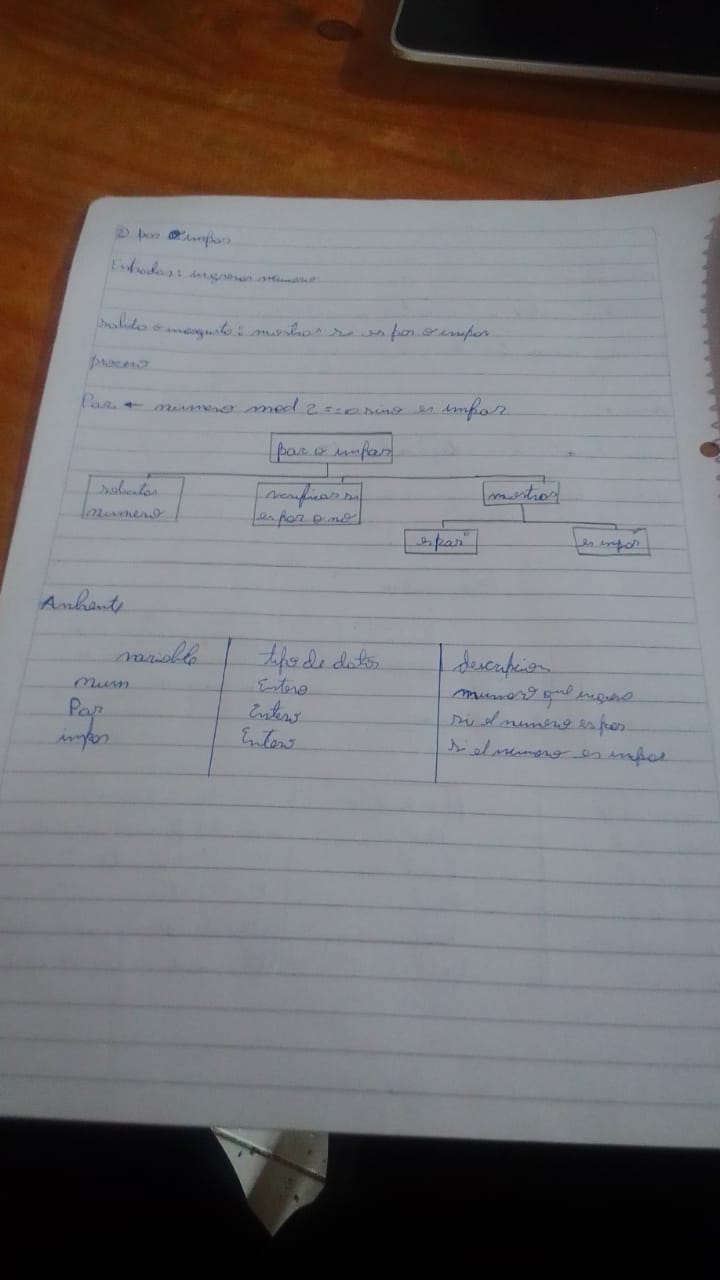 2) par o impar
Entradas: ingresar numero
salida o incognita: mostrar si es par o impar
proceso
Par ← numero mod 2 == 0 sino es impar
par o impar
solicitar
numero
verificar si
es par o no
mostrar
es par
es impar
Ambiente
variable
tipo de datos
descripcion
num
Entero
numero que ingreso
Par
Entero
si el numero es par
impar
Entero
si el numero es impar